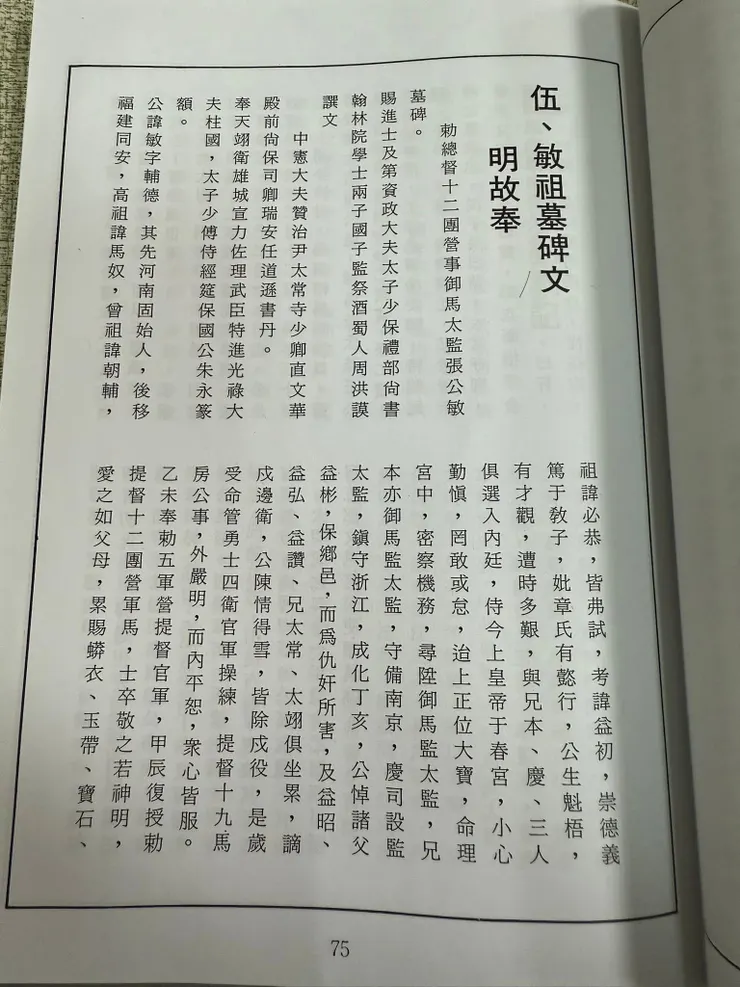 伍、敏祖墓碑文
明故奉
勅總督十二團營事御馬太監張公敏
墓碑。
賜進士及第資政大夫太子少保禮部尚書
翰林院學士兩子國子監祭酒蜀人周洪謨
譔文
中憲大夫贊治尹太常寺少卿直文華
殿前尚保司卿瑞安任道遜書丹。
奉天翊衛雄城宣力佐理武臣特進光祿大
夫柱國，太子少傅侍經筵保國公朱永篆
額。
公諱敏字輔德，其先河南固始人，後移
福建同安，高祖諱馬奴，曾祖諱朝輔，
祖諱必恭，皆弗試，考諱益初，崇德義
篤于教子，妣章氏有懿行，公生魁梧，
有才觀，遭時多艱，與兄本、慶、三人
俱選入內廷，侍今上皇帝于春宮，小心
勤愼，罔敢或怠，迨上正位大寶，命理
宮中，密察機務，尋陞御馬監太監，兄
本亦御馬監太監，守備南京，慶司設監
太監，鎭守浙江，成化丁亥，公悼諸父
益彬，保鄉邑，而爲仇奸所害，及益昭、
益弘、益讚、兄太常、太翊俱坐累，謫
戍邊衛，公陳情得雪，皆除戍役，是歲
受命管勇士四衛官軍操練，提督十九馬
房公事，外嚴明，而內平恕，衆心皆服。
乙未奉勅五軍營提督官軍，甲辰復授勅
提督十二團營軍馬，士卒敬之若神明，
愛之如父母，累賜蟒衣、玉帶、寶石、
75